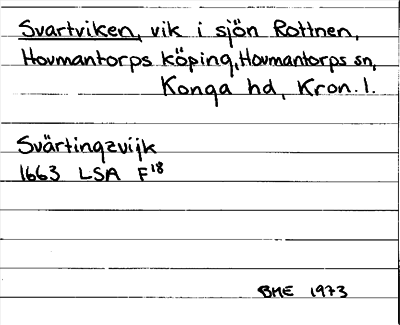 Svartviken, vik i sjön Rottnen,
Hovmantorps köping, Hovmantorps sn,
Konga hd, Kron. l.
Svärtingzvijk
1663 LSA F18
BME 1973